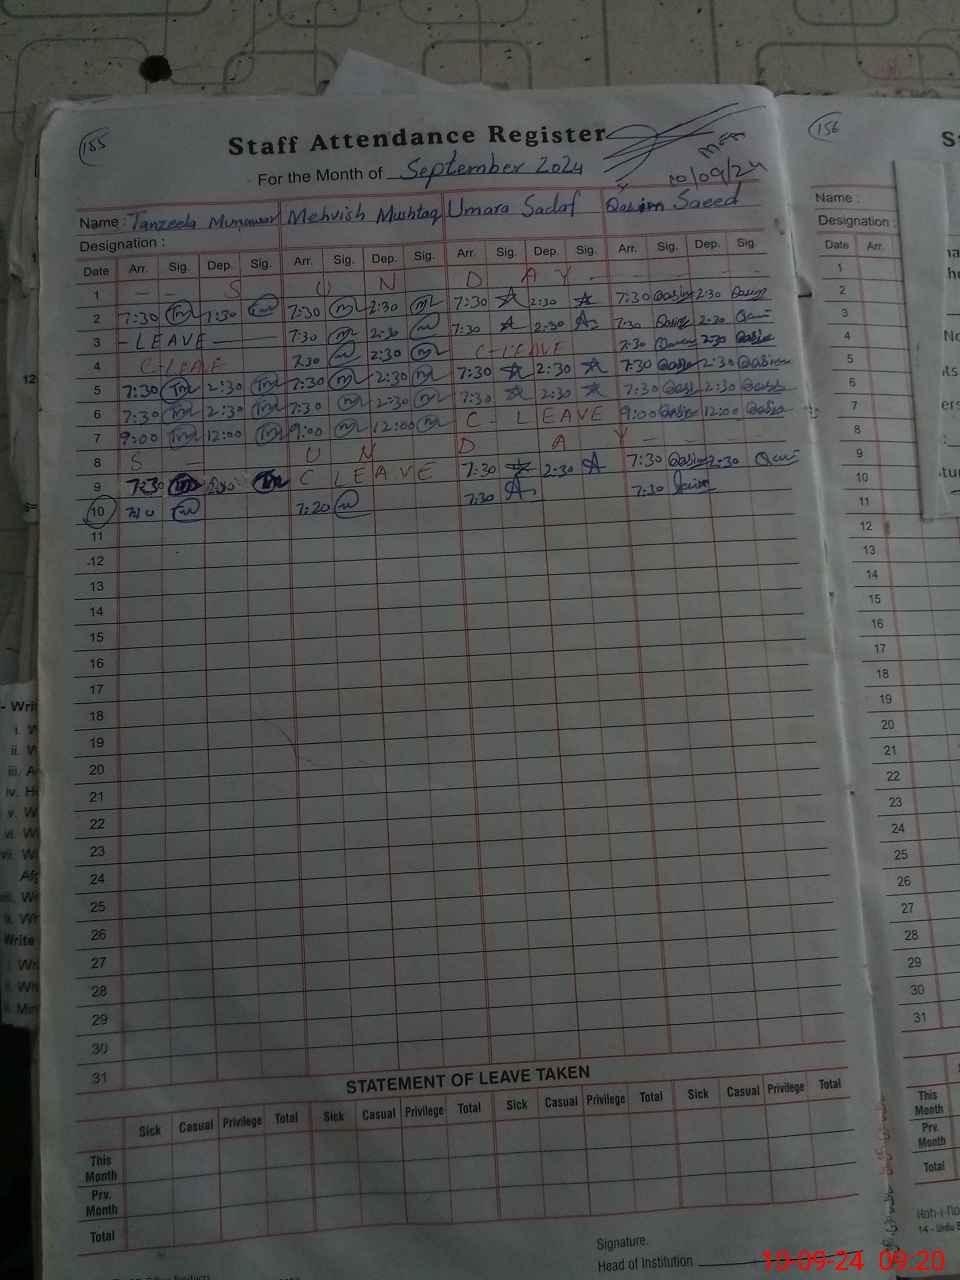 155
Staff Attendance Register
For the Month of September 2024
10/09/24
Name : Tanzeela Munawar Mehvish Mushtaq Umara Sadaf Qasim Saeed
Designation :
Date Arr. Sig. Dep. Sig. Arr. Sig. Dep. Sig. Arr. Sig. Dep. Sig. Arr. Sig. Dep. Sig.
1 - - S U N D A Y - - - -
2 7:30 Tm 1:30 Tm 7:30 m 2:30 m 7:30 2:30 7:30 Qasim 2:30 Qasim
3 - LEAVE - 7:30 m 2:30 m 7:30 2:30 7:30 Qasim 2:30
4 C-LEAVE 7:30 2:30 m C-LEAVE 7:30 2:30 Qasim
5 7:30 Tm 2:30 Tm 7:30 m 2:30 m 7:30 2:30 7:30 Qasim 2:30 Qasim
6 7:30 Tm 2:30 Tm 7:30 m 2:30 m 7:30 2:30 7:30 Qasim 2:30 Qasim
7 9:00 Tm 12:00 Tm 9:00 m 12:00 m C - LEAVE 9:00 Qasim 12:00 Qasim
8 S - U N D A Y - -
9 7:30 Tm 2:30 Tm C LEAVE 7:30 2:30 7:30 Qasim 2:30
10 7:10 Tm 7:20 7:30 7:30
11
12
13
14
15
16
17
18
19
20
21
22
23
24
25
26
27
28
29
30
31
STATEMENT OF LEAVE TAKEN
Sick Casual Privilege Total Sick Casual Privilege Total Sick Casual Privilege Total Sick Casual Privilege Total
This Month
Prv. Month
Total
Signature.
Head of Institution
156
Name :
Designation :
Date Arr.
1
2
3
4
5
6
7
8
9
10
11
12
13
14
15
16
17
18
19
20
21
22
23
24
25
26
27
28
29
30
31
This Month
Prv. Month
Total
10-09-24 09:20